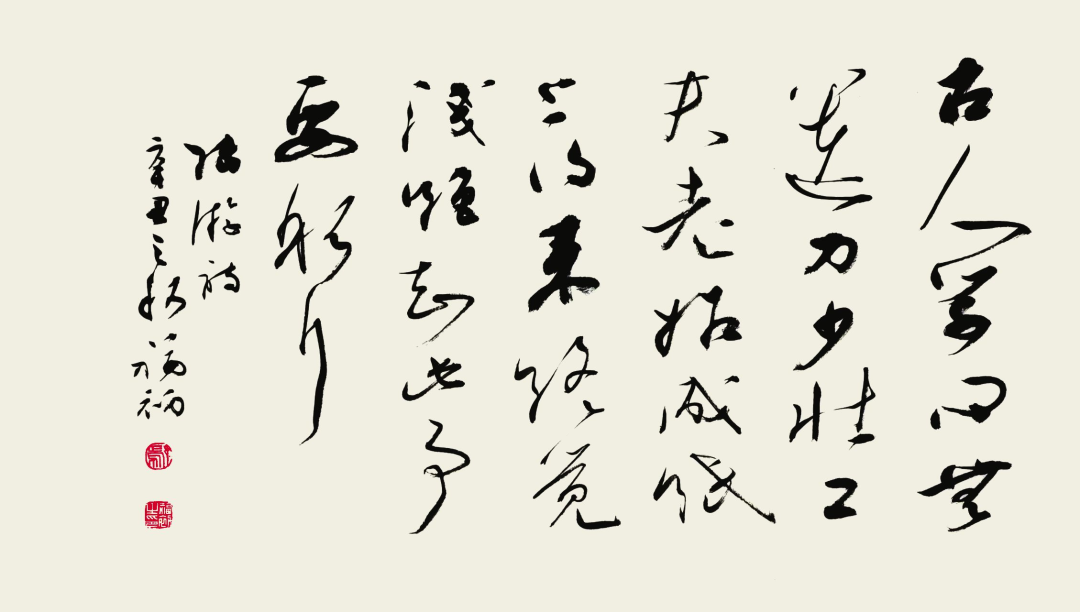 古人学问無
遗力少壮工
夫老始成纸
上得来终觉
浅绝知此事
要躬行
陆游诗
辛丑之秋